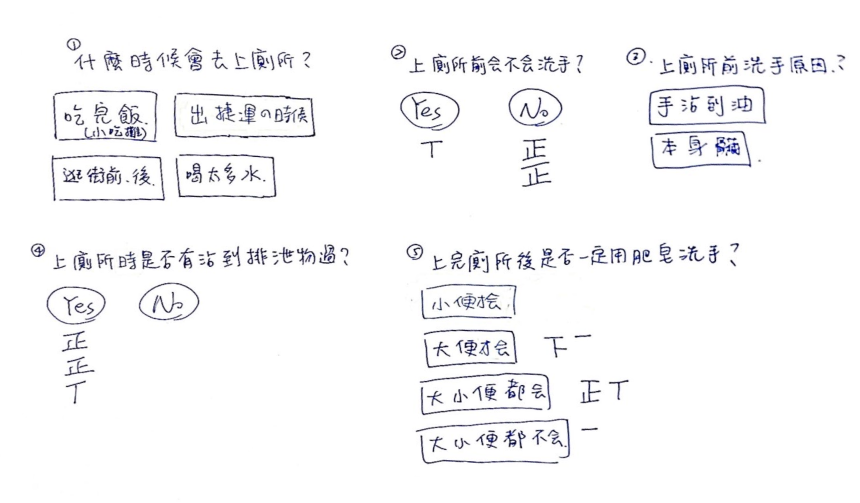 ① 什麼時候會去上廁所?
吃完飯.
(小吃攤)
出捷運の時候
逛街前、後.
喝太多水.
② 上廁所前会不会洗手?
Yes
No
丅
正
正
③. 上廁所前洗手原因.?
手沾到油
本身髒
④ 上廁所時是否有沾到排泄物過?
Yes
No
正
正
丅
⑤ 上完廁所後是否一定用肥皂洗手?
小便才会.
大便才会
下一
大小便都会
正丅
大小便都不会.
一